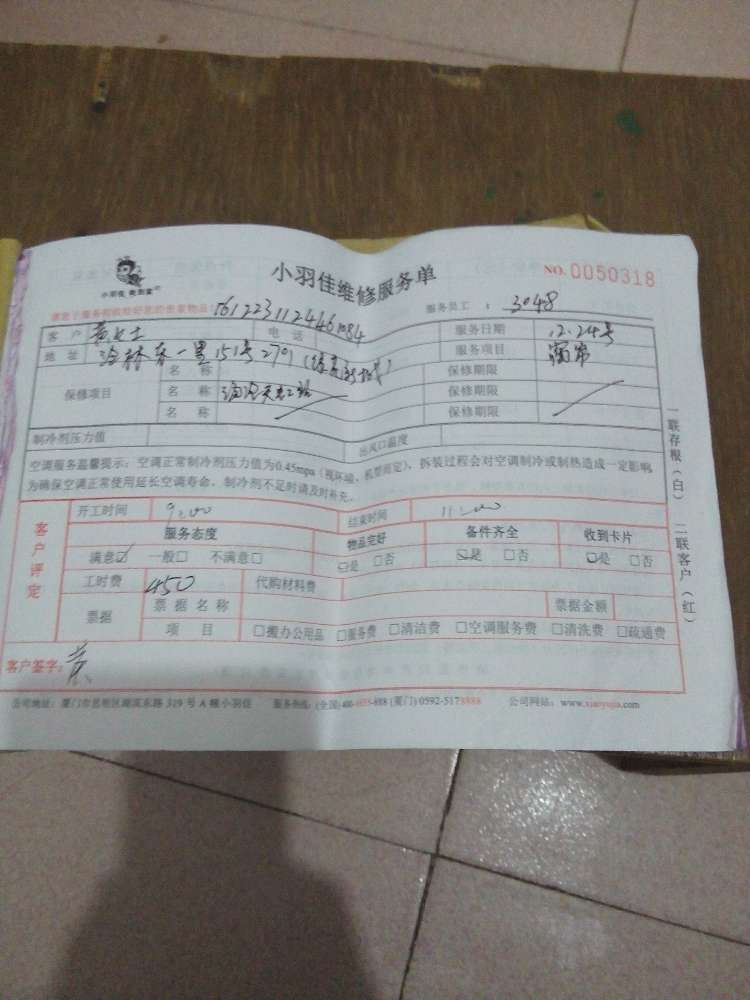 小羽佳 爱到家
小羽佳维修服务单
NO.0050318
服务员工：3048
161223112446084
客户 黄女士 电话 服务日期 12.24号
地址 洽林东一里151号2701 服务项目
保修项目 名称 保修期限
名称 保修期限
名称 保修期限
制冷剂压力值 出风口温度
空调服务温馨提示：空调正常制冷剂压力值为0.45mpa（视环境、机型而定）、拆装过程会对空调制冷或制热造成一定影响
为确保空调正常使用延长空调寿命、制冷剂不足时请及时补充。
客户评定
开工时间 9:00 结束时间 11:00
服务态度 物品完好 备件齐全 收到卡片
满意☑ 一般□ 不满意□ ☑是 □否 ☑是 □否 ☑是 □否
工时费 450 代购材料费
票据 票据名称 票据金额
项目 □搬办公用品 □服务费 □清洁费 □空调服务费 □清洗费 □疏通费
客户签字：黄
公司地址：厦门市思明区湖滨东路319号A幢小羽佳 服务热线：(全国)400-1655-888 (厦门)0592-5178888 公司网站：www.xiaoyujia.com
一联存根（白） 二联客户（红）